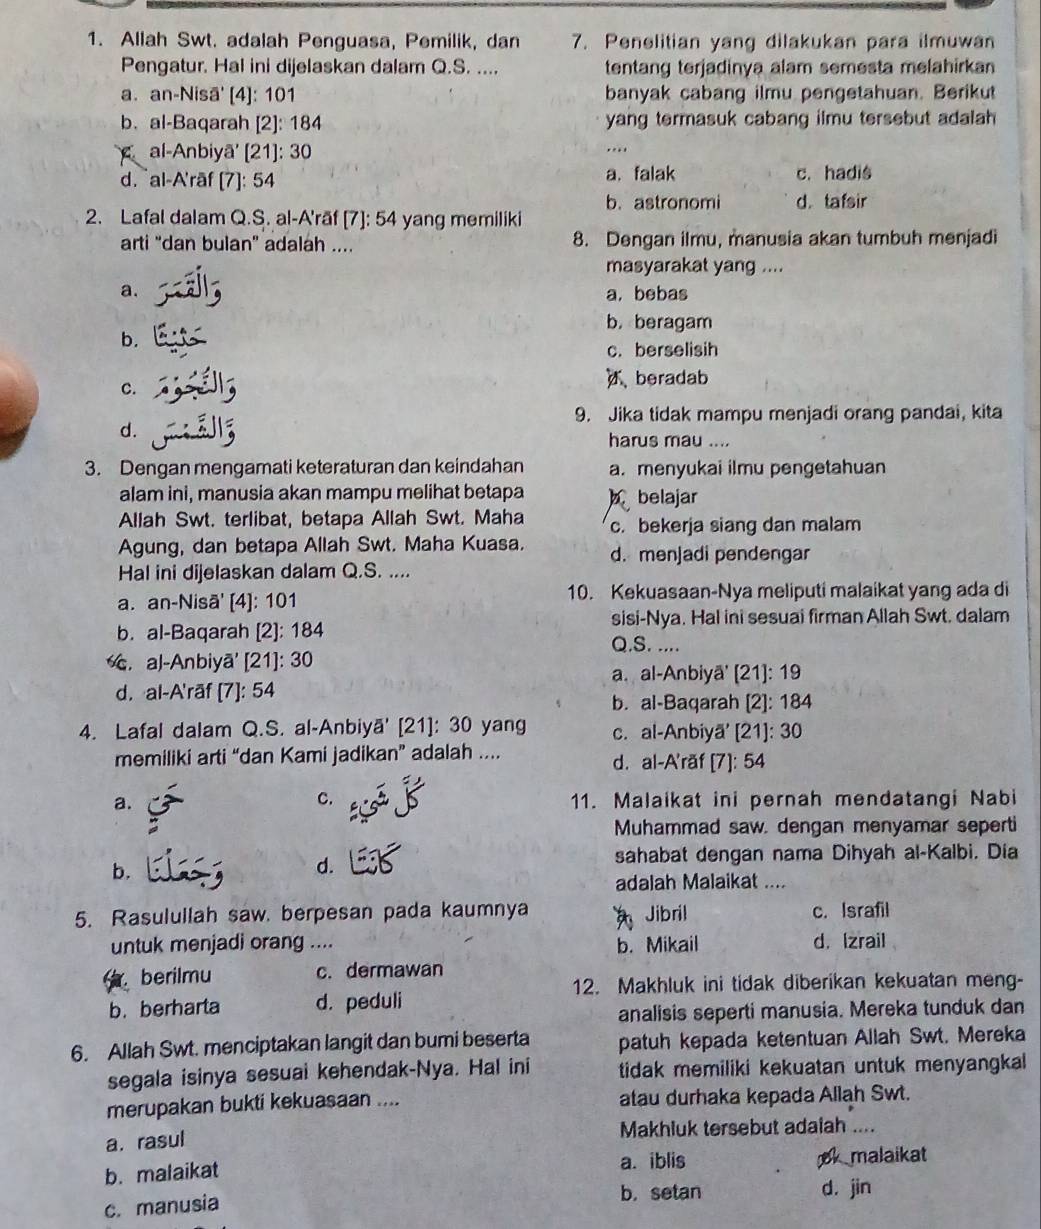 1. Allah Swt. adalah Penguasa, Pemilik, dan
Pengatur. Hal ini dijelaskan dalam Q.S. ....
a. an-Nisā' [4]: 101
b. al-Baqarah [2]: 184
c. al-Anbiyā' [21]: 30
d. al-A'rāf [7]: 54
2. Lafal dalam Q.S. al-A'rāf [7]: 54 yang memiliki
arti "dan bulan" adalah ....
a. وَالْقَمَرَ
b. حَثِيْثًا
c. وَالنُّجُوْمَ
d. وَالشَّمْسَ
3. Dengan mengamati keteraturan dan keindahan
alam ini, manusia akan mampu melihat betapa
Allah Swt. terlibat, betapa Allah Swt. Maha
Agung, dan betapa Allah Swt. Maha Kuasa.
Hal ini dijelaskan dalam Q.S. ....
a. an-Nisā' [4]: 101
b. al-Baqarah [2]: 184
c. al-Anbiyā' [21]: 30
d. al-A'rāf [7]: 54
4. Lafal dalam Q.S. al-Anbiyā' [21]: 30 yang
memiliki arti "dan Kami jadikan" adalah ....
a. حَيٍّ c. كُلَّ شَيْءٍ
b. وَجَعَلْنَا d. كَانَتَا
5. Rasulullah saw. berpesan pada kaumnya
untuk menjadi orang ....
a. berilmu c. dermawan
b. berharta d. peduli
6. Allah Swt. menciptakan langit dan bumi beserta
segala isinya sesuai kehendak-Nya. Hal ini
merupakan bukti kekuasaan ....
a. rasul
b. malaikat
c. manusia
7. Penelitian yang dilakukan para ilmuwan
tentang terjadinya alam semesta melahirkan
banyak cabang ilmu pengetahuan. Berikut
yang termasuk cabang ilmu tersebut adalah
....
a. falak c. hadiś
b. astronomi d. tafsir
8. Dengan ilmu, manusia akan tumbuh menjadi
masyarakat yang ....
a. bebas
b. beragam
c. berselisih
d. beradab
9. Jika tidak mampu menjadi orang pandai, kita
harus mau ....
a. menyukai ilmu pengetahuan
b. belajar
c. bekerja siang dan malam
d. menjadi pendengar
10. Kekuasaan-Nya meliputi malaikat yang ada di
sisi-Nya. Hal ini sesuai firman Allah Swt. dalam
Q.S. ....
a. al-Anbiyā' [21]: 19
b. al-Baqarah [2]: 184
c. al-Anbiyā' [21]: 30
d. al-A'rāf [7]: 54
11. Malaikat ini pernah mendatangi Nabi
Muhammad saw. dengan menyamar seperti
sahabat dengan nama Dihyah al-Kalbi. Dia
adalah Malaikat ....
a. Jibril c. Israfil
b. Mikail d. Izrail
12. Makhluk ini tidak diberikan kekuatan meng-
analisis seperti manusia. Mereka tunduk dan
patuh kepada ketentuan Allah Swt. Mereka
tidak memiliki kekuatan untuk menyangkal
atau durhaka kepada Allah Swt.
Makhluk tersebut adalah ....
a. iblis c. malaikat
b. setan d. jin